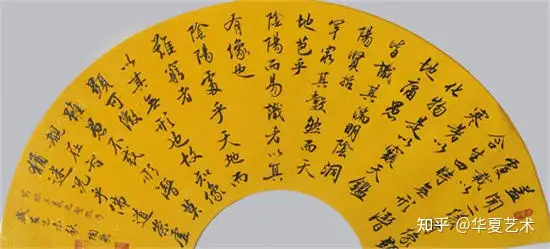 蓋聞二儀有像顯
覆載以
含生四時無形潛
寒暑以
化物是以窺天鑑
地庸愚
皆識其端明陰洞
陽賢哲
罕窮其數然而天
地苞乎
陰陽而易識者以其
有像也
陰陽處乎天地而
難窮者
以其無形也故知像
顯可徵
雖愚不惑形潛莫
覩在智
猶迷況乎佛道崇虛
知乎 @华夏艺术